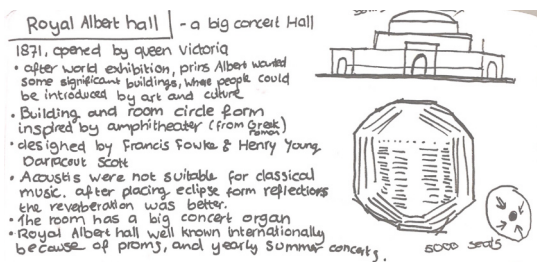 Royal Albert hall - a big concert Hall
1871, opened by queen Victoria
• after world exhibition, prins Albert wanted
some significant buildings, where people could
be introduced by art and culture
• Building and room circle form
inspired by amphitheater (from Greek)
roman
• designed by Francis Fowke & Henry Young
Darracout Scott
• Acoustis were not suitable for classical
music. after placing eclipse form reflections
the reverberation was better.
• The room has a big concert organ
• Royal Albert hall well known internationally
because of proms, and yearly summer concerts.
5000 seats